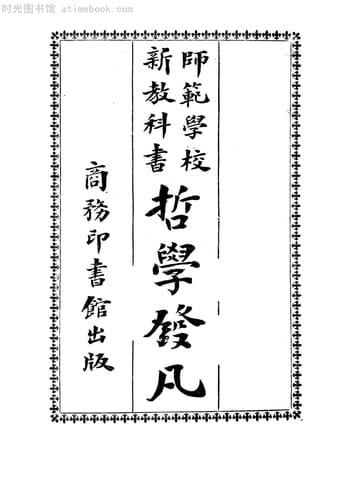 时光图书馆 - atimebook.com
師範學校
新教科書
哲學發凡
商務印書館出版